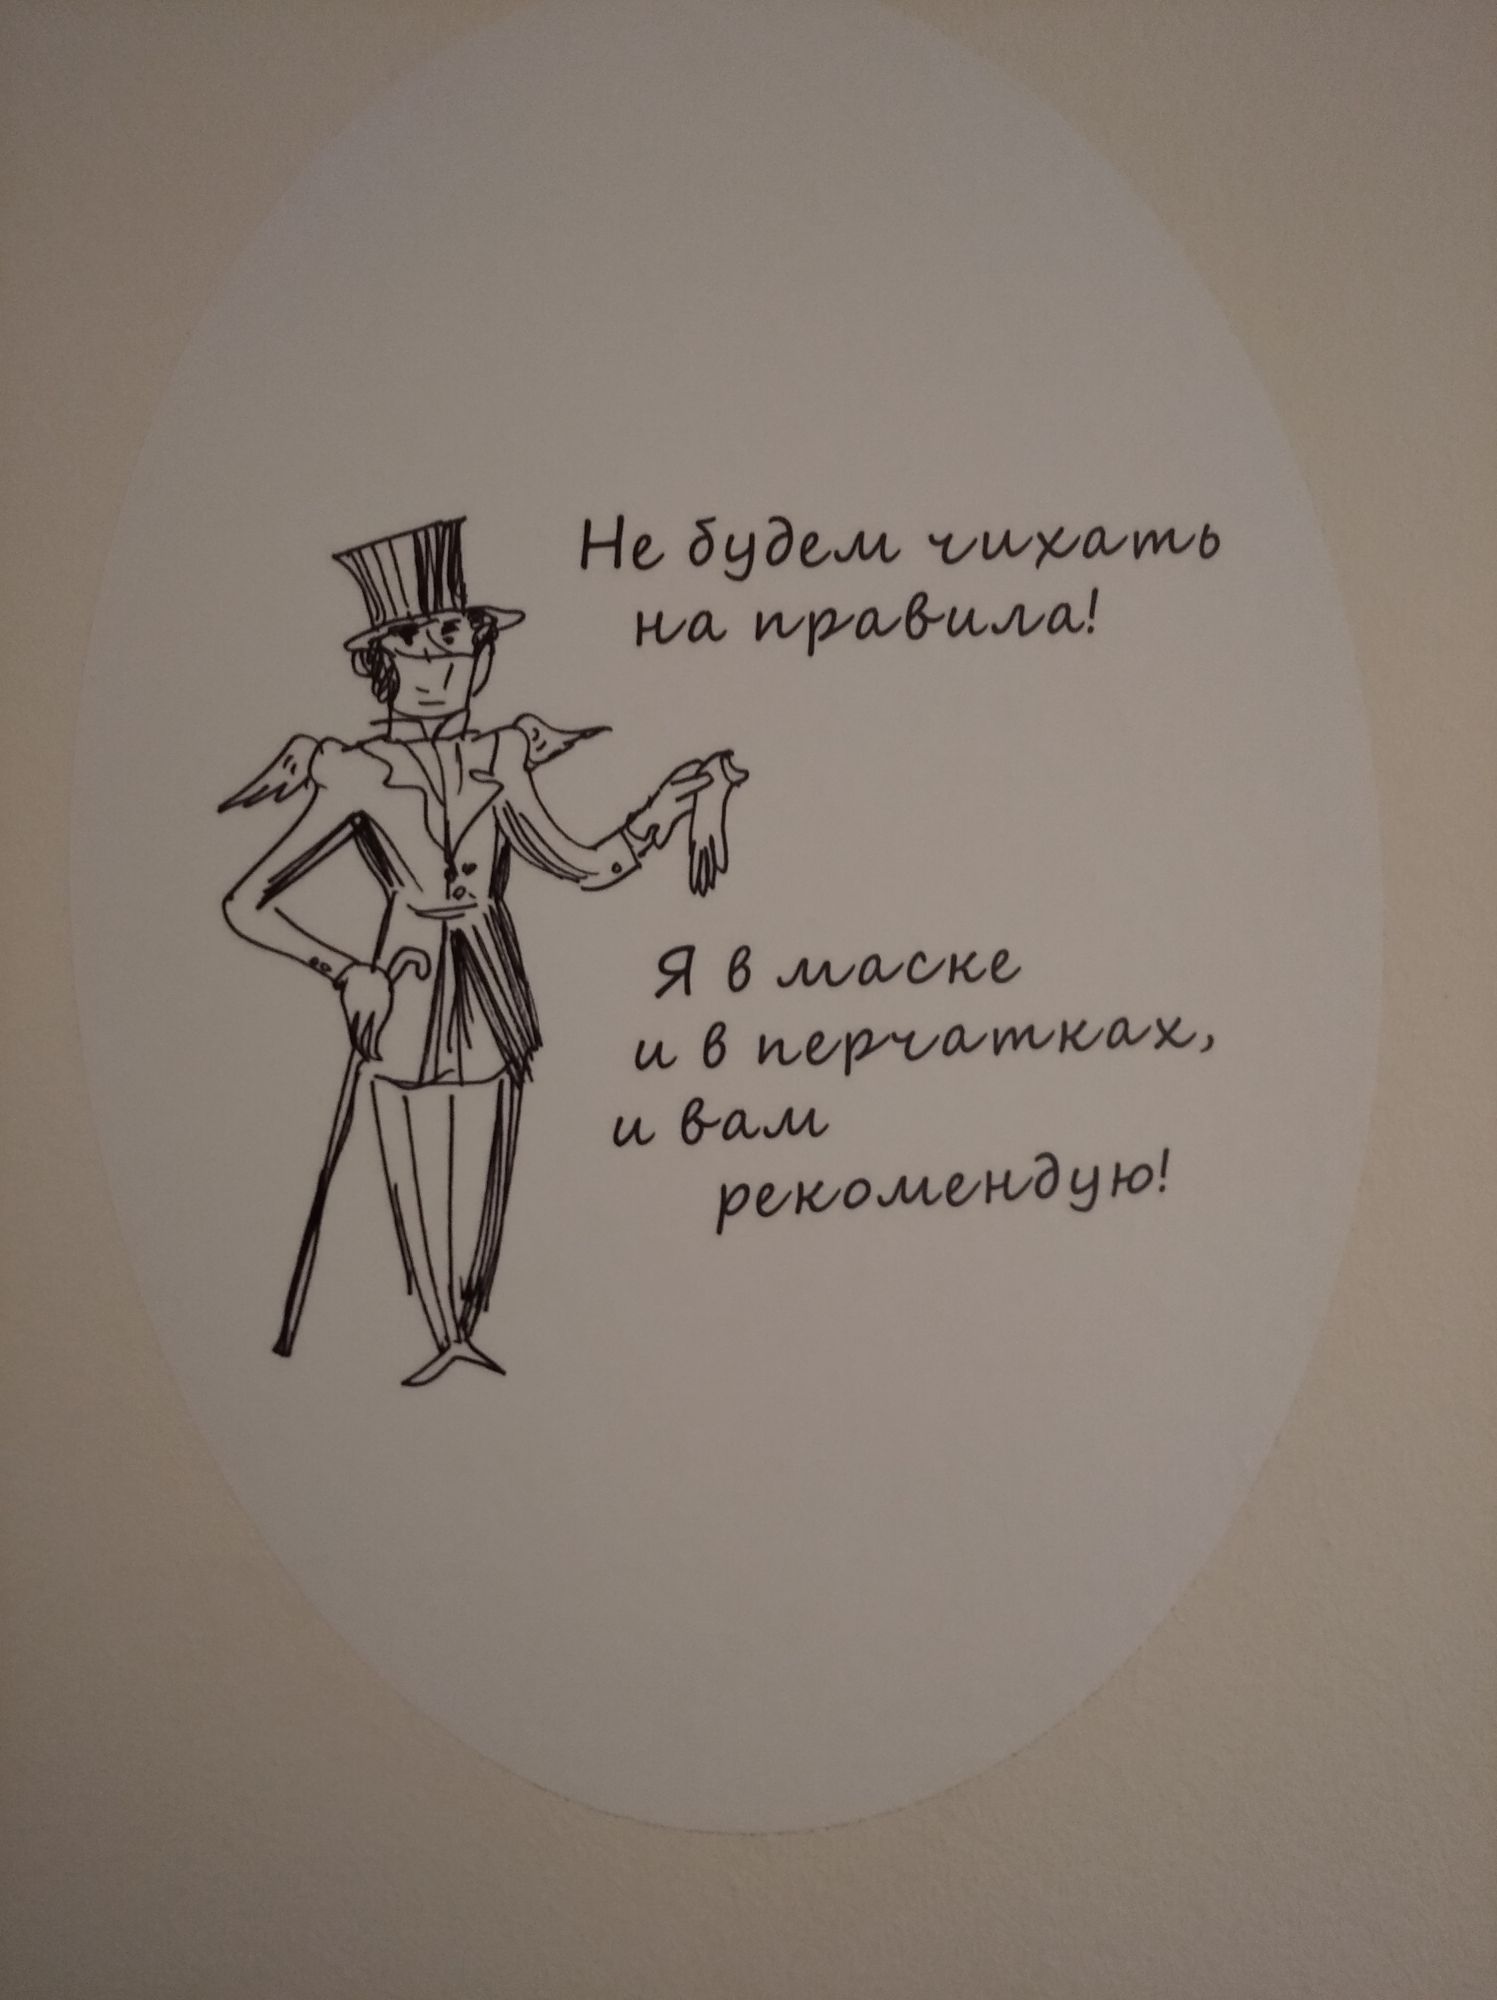 Не будем чихать
на правила!
Я в маске
и в перчатках,
и вам
рекомендую!